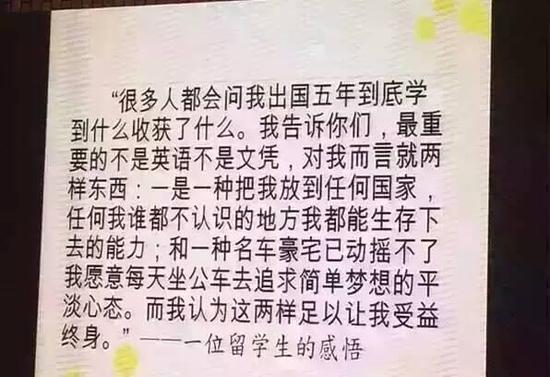 “很多人都会问我出国五年到底学
到什么收获了什么。我告诉你们，最重
要的不是英语不是文凭，对我而言就两
样东西：一是一种把我放到任何国家，
任何我谁都不认识的地方我都能生存下
去的能力；和一种名车豪宅已动摇不了
我愿意每天坐公车去追求简单梦想的平
淡心态。而我认为这两样足以让我受益
终身。” ——一位留学生的感悟